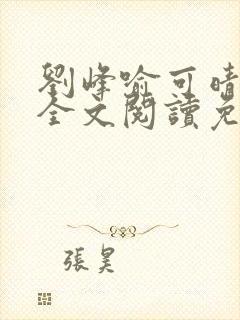 劉峰喻可晴
全文閱讀免
張昊